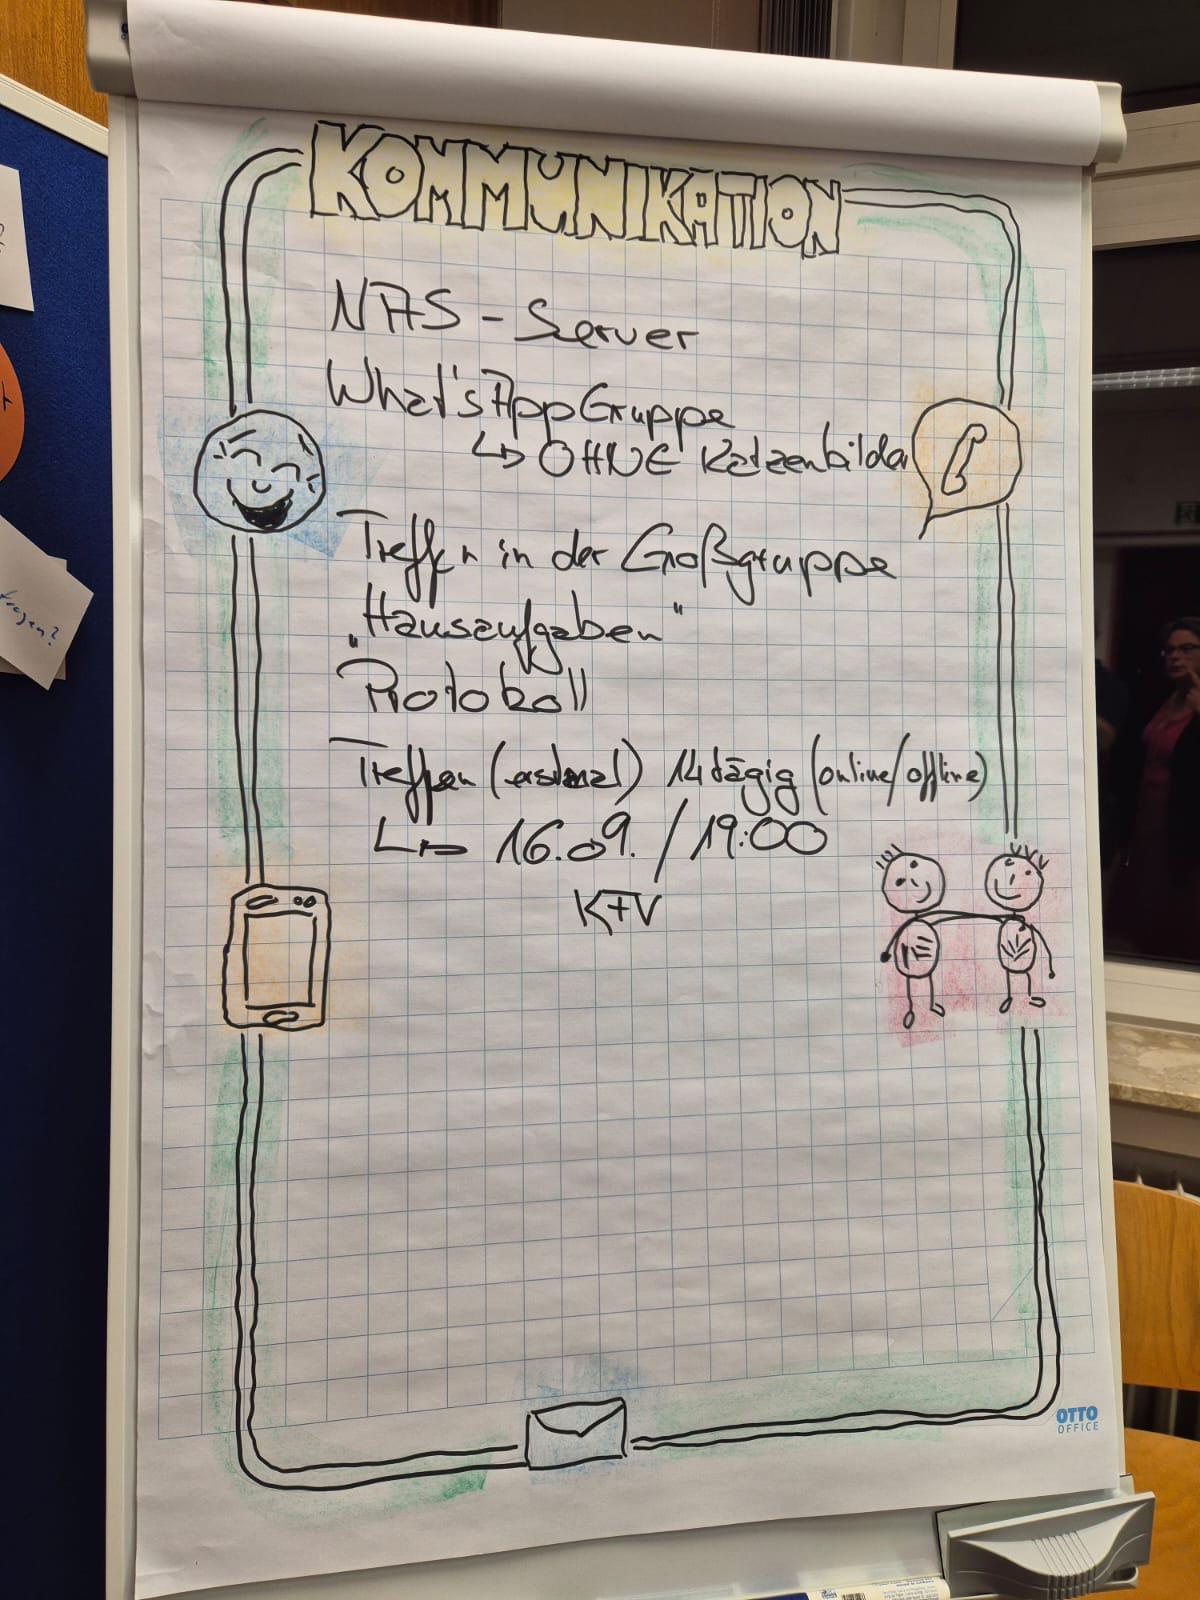 KOMMUNIKATION
NAS - Server
What'sAppGruppe
↳ OHNE Katzenbilder
Treffen in der Großgruppe
„Hausaufgaben"
Protokoll
Treffen (erstmal) 14tägig (online/offline)
↳ 16.09. / 19:00
KTV
OTTO
OFFICE
fragen?